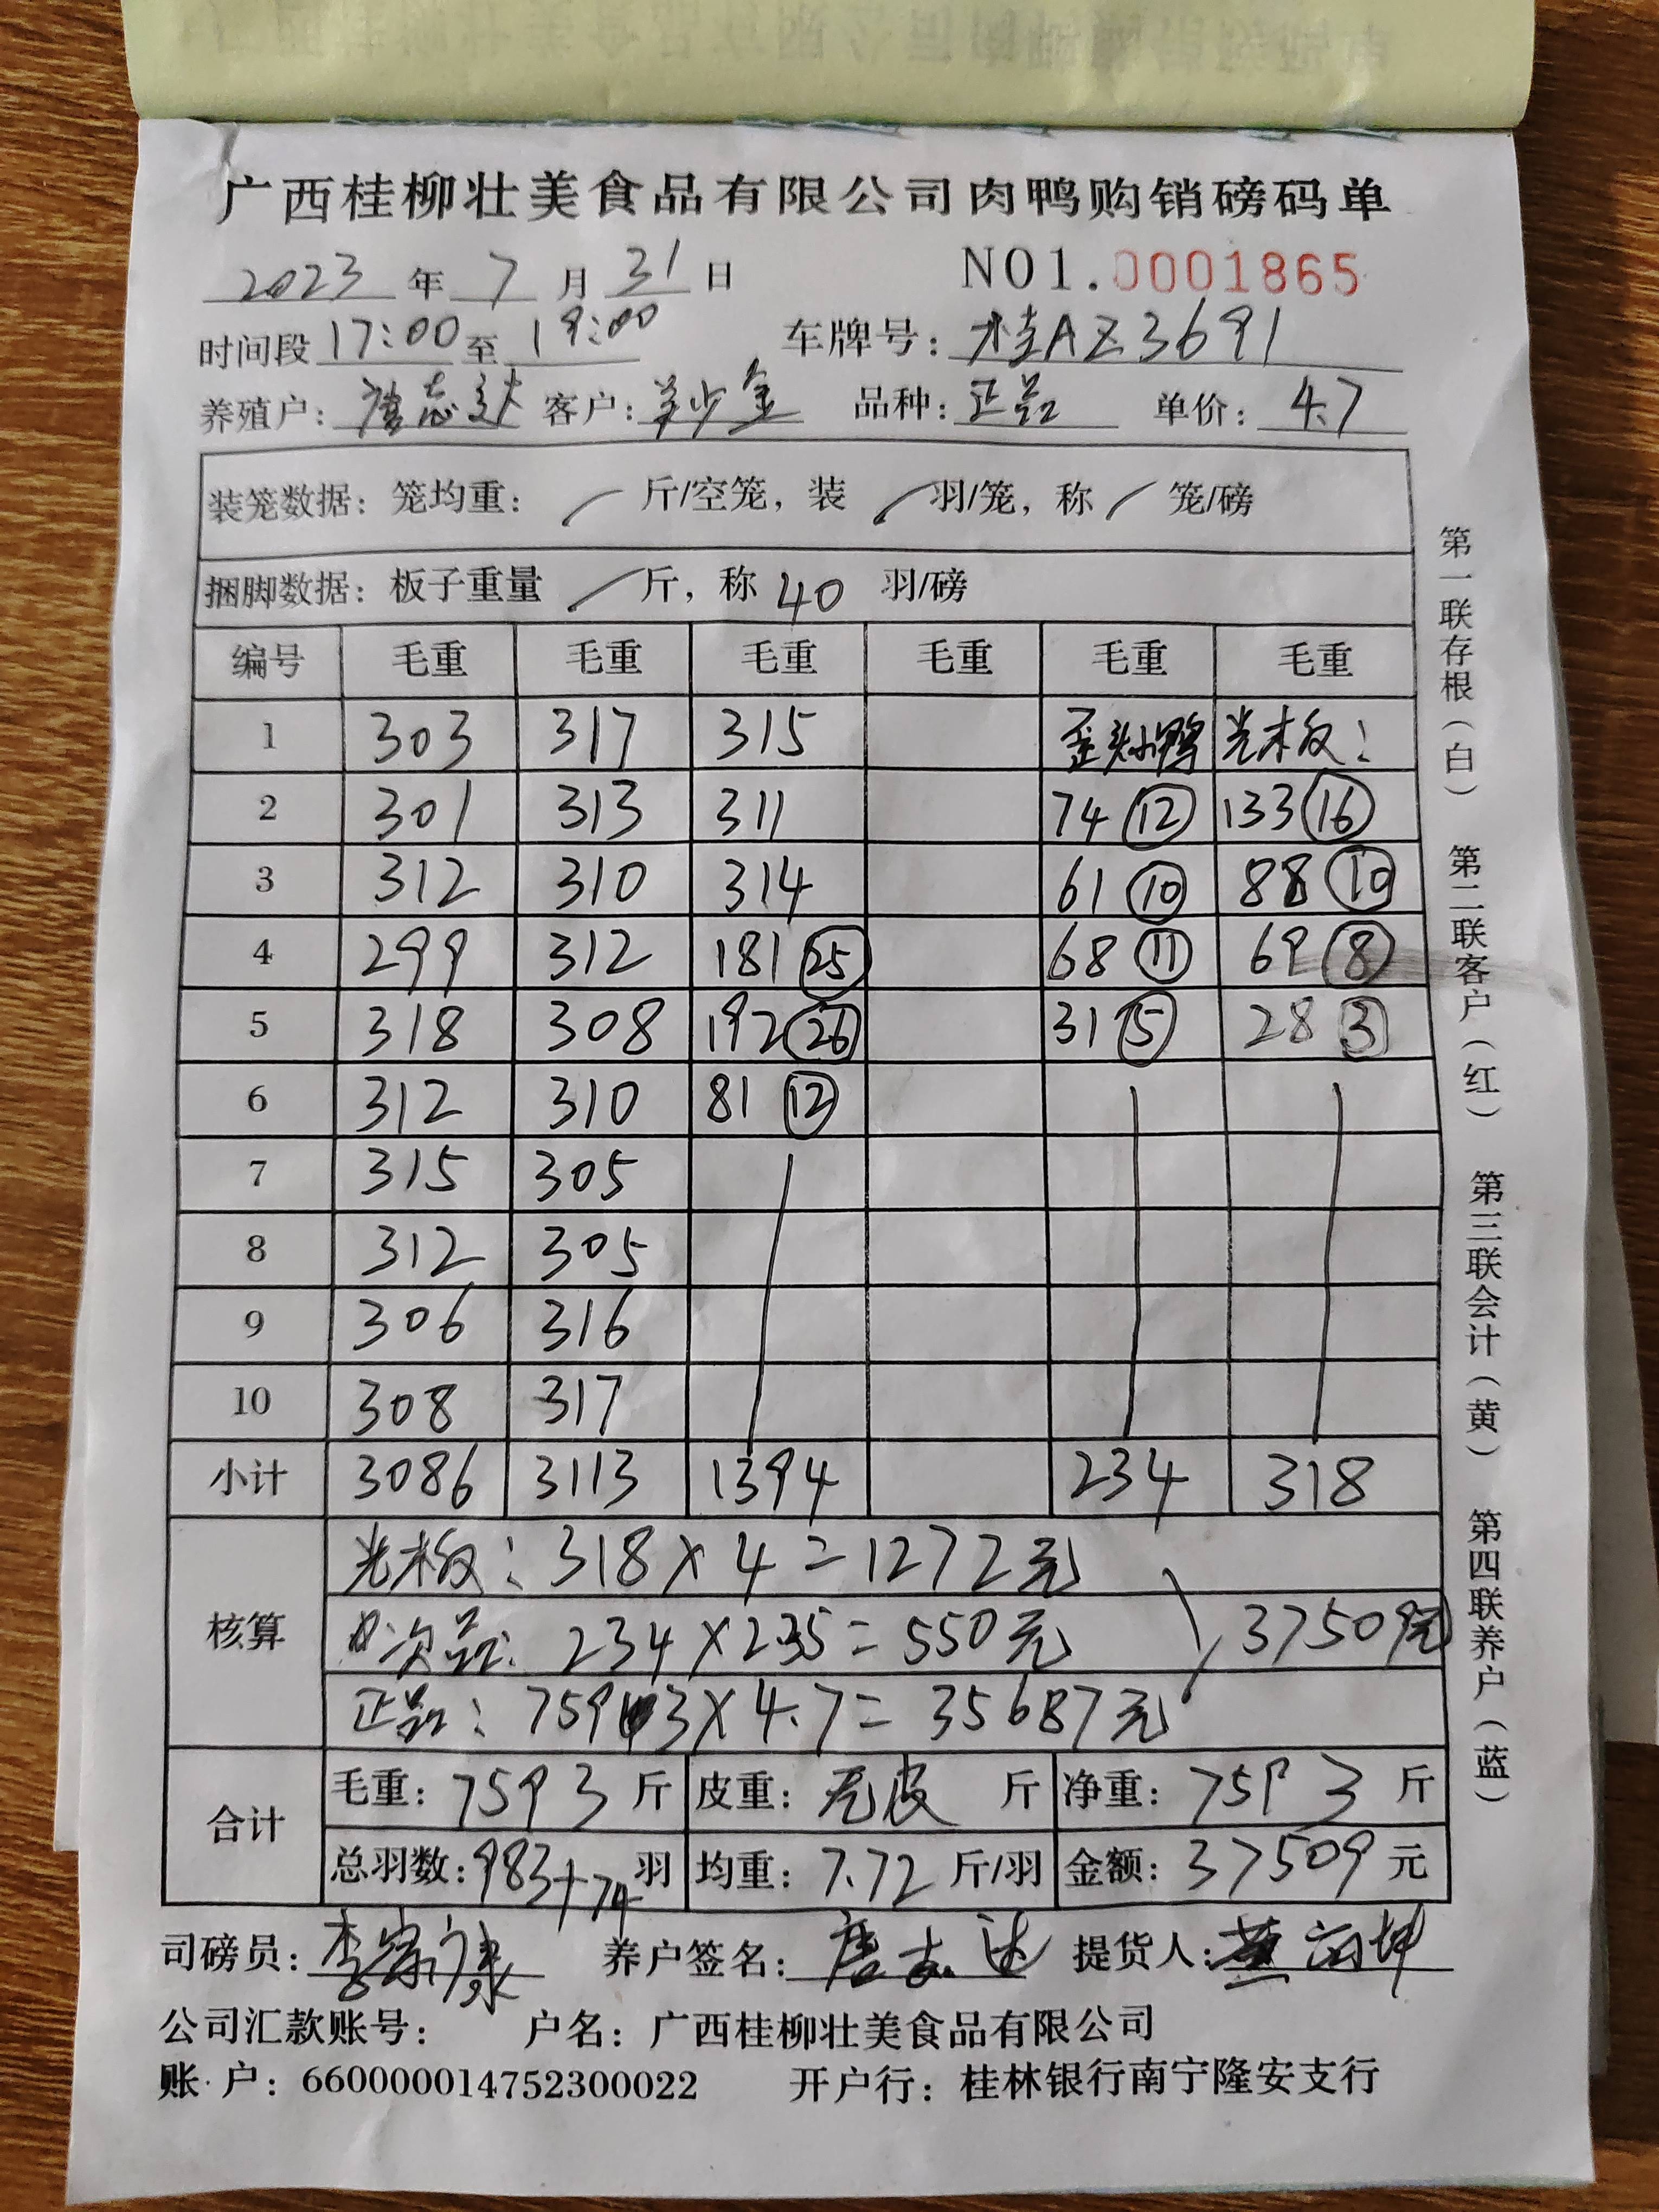 广西桂柳壮美食品有限公司肉鸭购销磅码单
2023 年 7 月 31 日 NO1.0001865
时间段 17:00 至 19:00 车牌号: 桂AZ3691
养殖户: 唐志达 客户: 少金 品种: 正品 单价: 4.7
装笼数据: 笼均重: / 斤/空笼, 装 / 羽/笼, 称 / 笼/磅
捆脚数据: 板子重量 / 斤, 称 40 羽/磅
编号 毛重 毛重 毛重 毛重 毛重 毛重
1 303 317 315 歪头小鸭 光板:
2 301 313 311 74 ⑫ 133 ⑯
3 312 310 314 61 ⑩ 88 ⑩
4 299 312 181 ㉕ 68 ⑪ 69 ⑧
5 318 308 192 ㉖ 31 ⑤ 28 ③
6 312 310 81 ⑫
7 315 305
8 312 305
9 306 316
10 308 317
小计 3086 3113 1394 234 318
核算
光板: 318×4=1272元
次品: 234×2.35=550元
37509元
正品: 7593×4.7=35687元
合计
毛重: 7593 斤 皮重: 无皮 斤 净重: 7593 斤
总羽数: 983+74 羽 均重: 7.72 斤/羽 金额: 37509 元
司磅员: 李康 养户签名: 唐志达 提货人: 坤
公司汇款账号: 户名: 广西桂柳壮美食品有限公司
账户: 660000014752300022 开户行: 桂林银行南宁隆安支行
第一联存根(白) 第二联客户(红) 第三联会计(黄) 第四联养户(蓝)